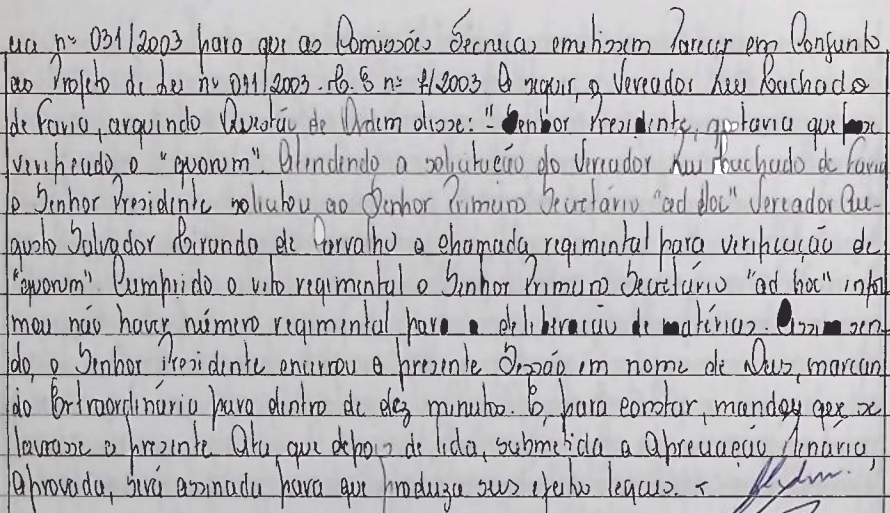 cia nº 031/2003 para que as Comissões Técnicas emitissem Parecer em Conjunto
ao Projeto de Lei nº 011/2003. A seguir, o Vereador Machado
de Faria, arguindo Questão de Ordem disse: "Senhor Presidente, gostaria que fosse
verificado o "quorum". Atendendo a solicitação do Vereador Machado de Faria
o Senhor Presidente solicitou ao Senhor Primeiro Secretário "ad hoc" Vereador Au-
gusto Salvador Miranda de Carvalho a chamada regimental para verificação de
"quorum". Cumprido o rito regimental o Senhor Primeiro Secretário "ad hoc" infor
mou não haver número regimental para a deliberação de matérias. Assim sen
do, o Senhor Presidente encerrou a presente Sessão em nome de Deus, marcan
do Extraordinária para dentro de dez minutos. E, para constar, mandou que se
lavrasse a presente Ata, que depois de lida, submetida a apreciação Plenária,
aprovada, será assinada para que produza seus efeitos legais.